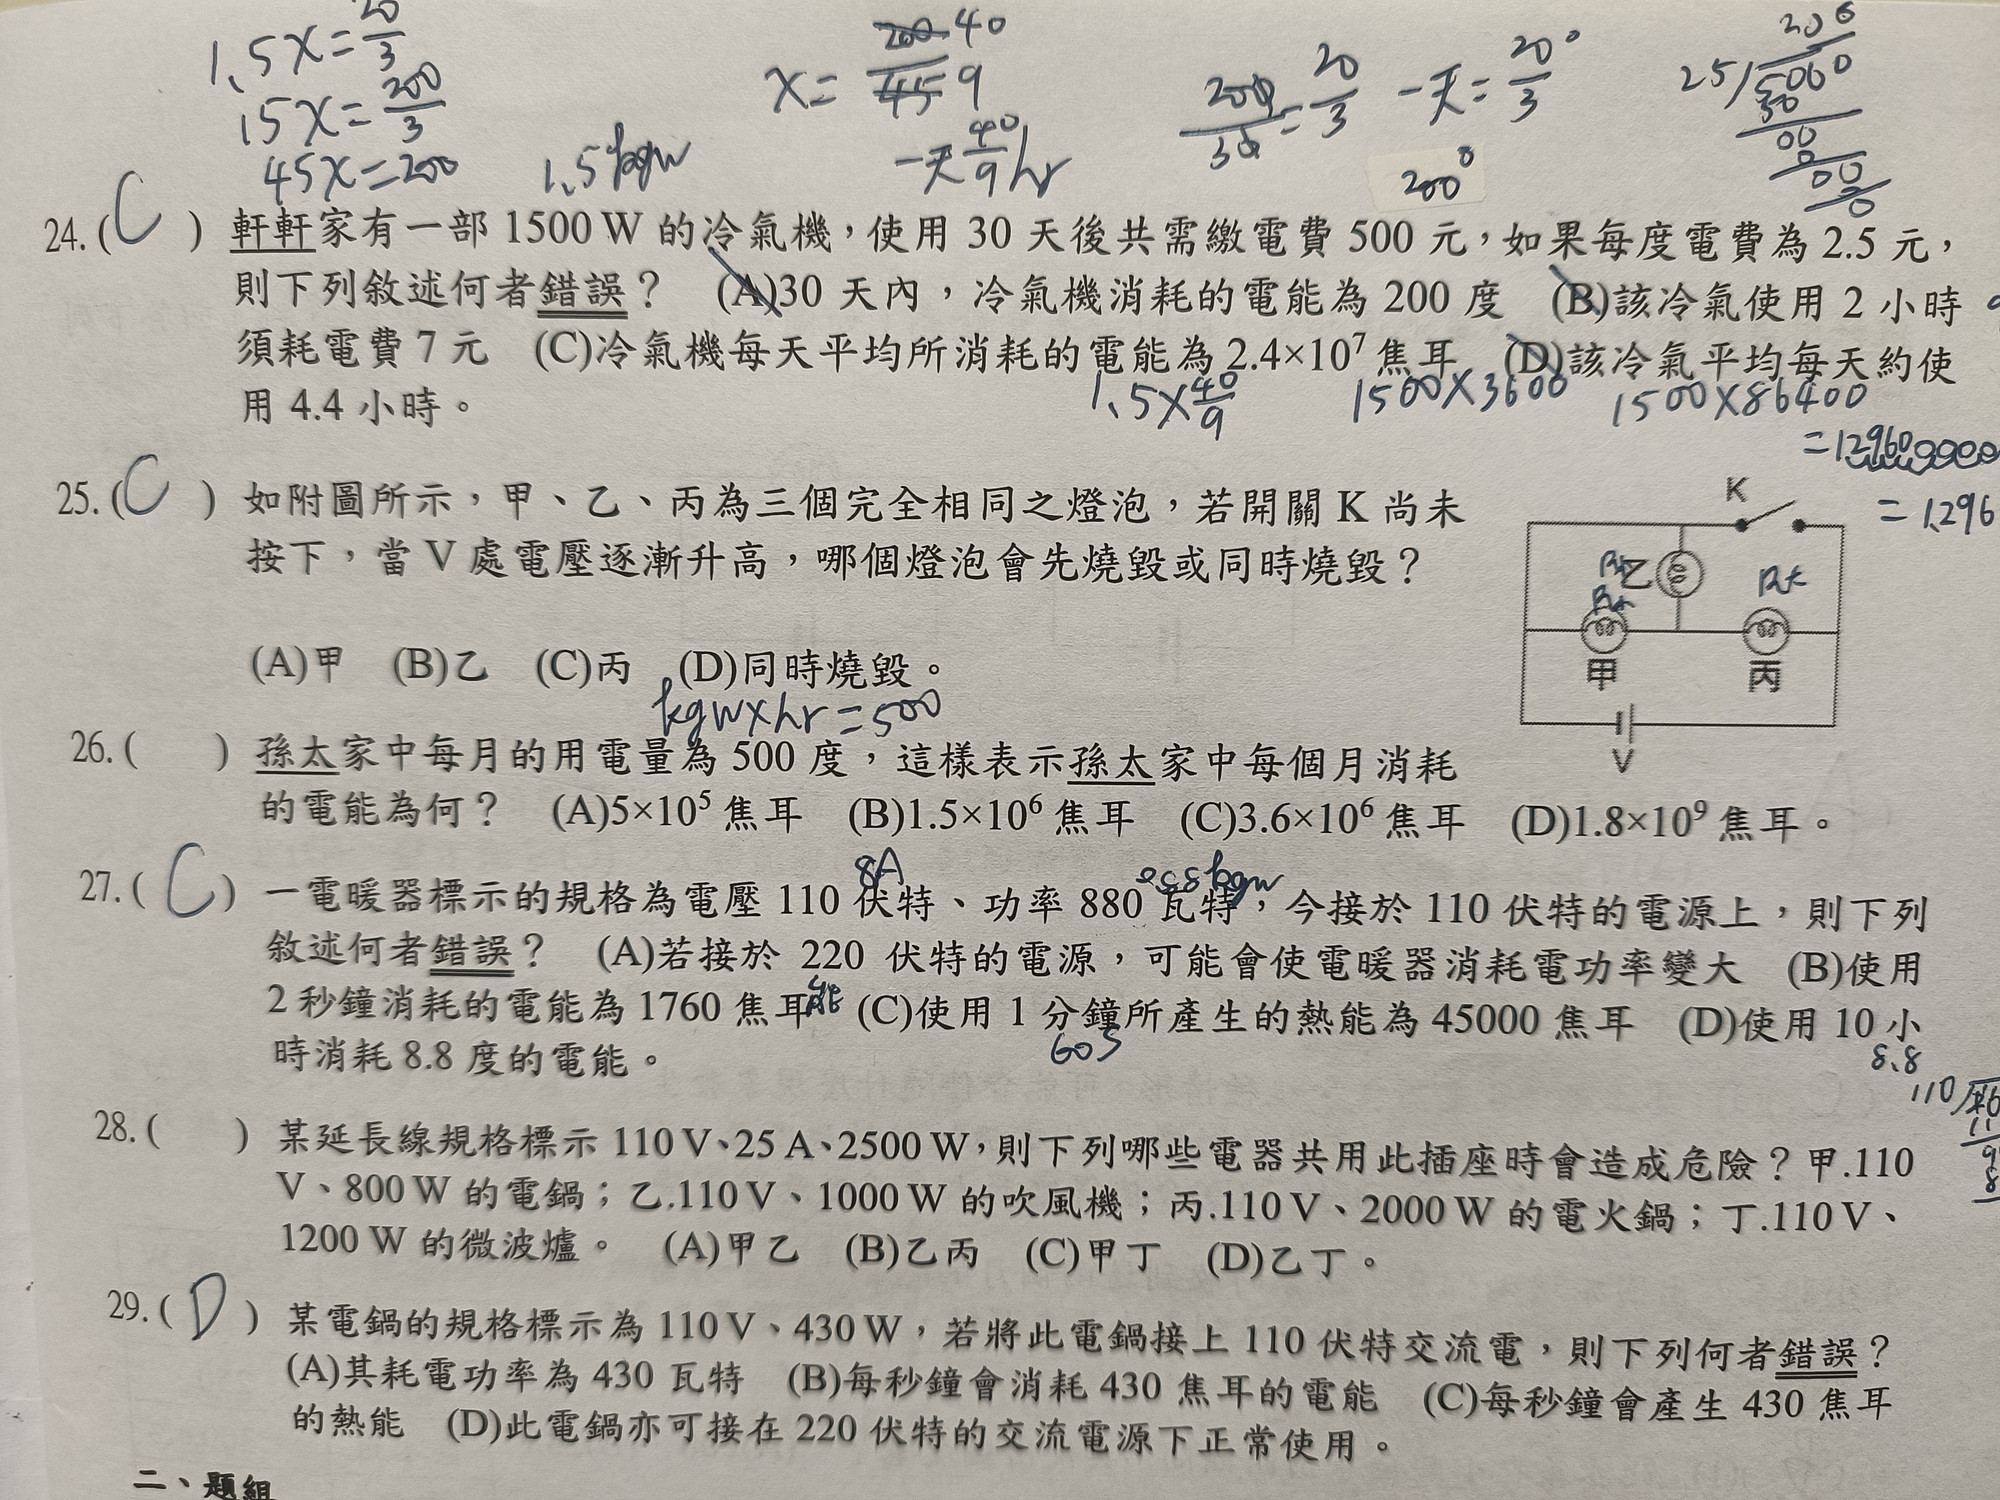 1.5X=20/3
15X=200/3
45X=200
1.5kgw
X= 200 40 / 45 9
一天 40/9 hr
200/30=20/3
一天=20°/3
200°
25/5000
24.(C) 軒軒家有一部 1500 W 的冷氣機，使用 30 天後共需繳電費 500 元，如果每度電費為 2.5 元，
則下列敘述何者錯誤？ (A)30 天內，冷氣機消耗的電能為 200 度 (B)該冷氣使用 2 小時
須耗電費 7 元 (C)冷氣機每天平均所消耗的電能為 2.4×10⁷ 焦耳 (D)該冷氣平均每天約使
用 4.4 小時。
1.5×40/9
1500×3600
1500×86400
=1.296
25.(C) 如附圖所示，甲、乙、丙為三個完全相同之燈泡，若開關 K 尚未
按下，當 V 處電壓逐漸升高，哪個燈泡會先燒毀或同時燒毀？
(A)甲 (B)乙 (C)丙 (D)同時燒毀。
K
乙
甲
丙
V
kgw×hr=500
26.( ) 孫太家中每月的用電量為 500 度，這樣表示孫太家中每個月消耗
的電能為何？ (A)5×10⁵ 焦耳 (B)1.5×10⁶ 焦耳 (C)3.6×10⁶ 焦耳 (D)1.8×10⁹ 焦耳。
8A
27.(C) 一電暖器標示的規格為電壓 110 伏特、功率 880 瓦特，今接於 110 伏特的電源上，則下列
敘述何者錯誤？ (A)若接於 220 伏特的電源，可能會使電暖器消耗電功率變大 (B)使用
2 秒鐘消耗的電能為 1760 焦耳 (C)使用 1 分鐘所產生的熱能為 45000 焦耳 (D)使用 10 小
時消耗 8.8 度的電能。
60s
8.8
28.( ) 某延長線規格標示 110 V、25 A、2500 W，則下列哪些電器共用此插座時會造成危險？甲.110
V、800 W 的電鍋；乙.110 V、1000 W 的吹風機；丙.110 V、2000 W 的電火鍋；丁.110 V、
1200 W 的微波爐。 (A)甲乙 (B)乙丙 (C)甲丁 (D)乙丁。
29.(D) 某電鍋的規格標示為 110 V、430 W，若將此電鍋接上 110 伏特交流電，則下列何者錯誤？
(A)其耗電功率為 430 瓦特 (B)每秒鐘會消耗 430 焦耳的電能 (C)每秒鐘會產生 430 焦耳
的熱能 (D)此電鍋亦可接在 220 伏特的交流電源下正常使用。
二、題組